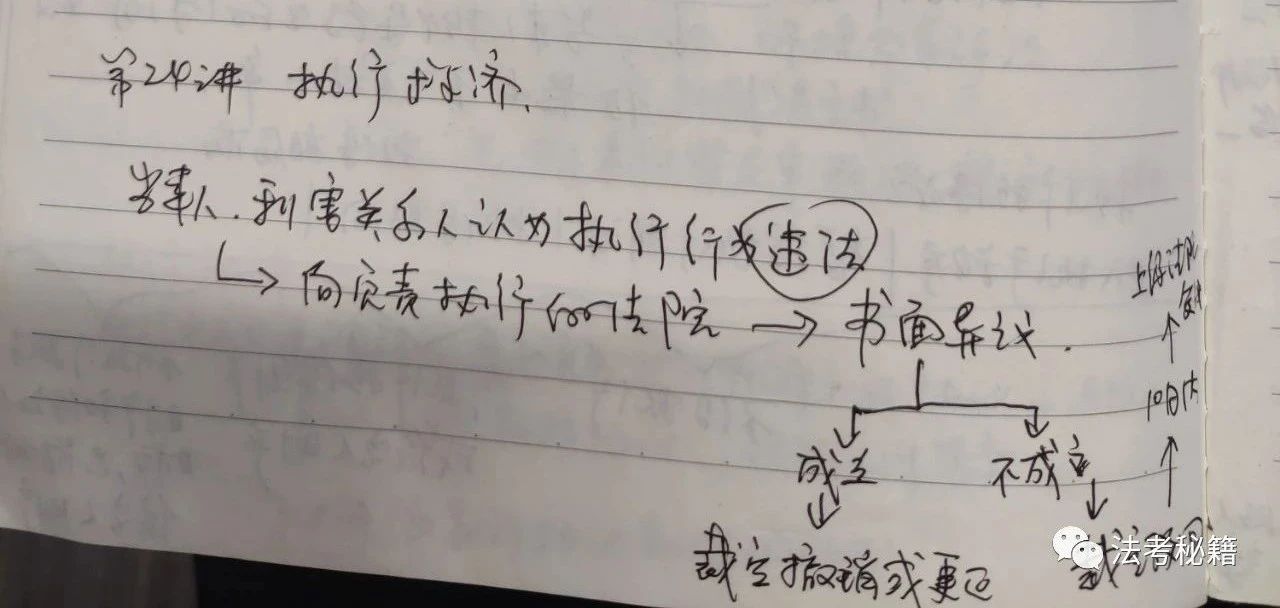 第24讲 执行救济.
当事人.利害关系人认为执行行为违法
↳向负责执行的法院→书面异议.
成立
不成立
裁定撤销或更正
裁定驳回
10日内
上级法院
复议
法考秘籍